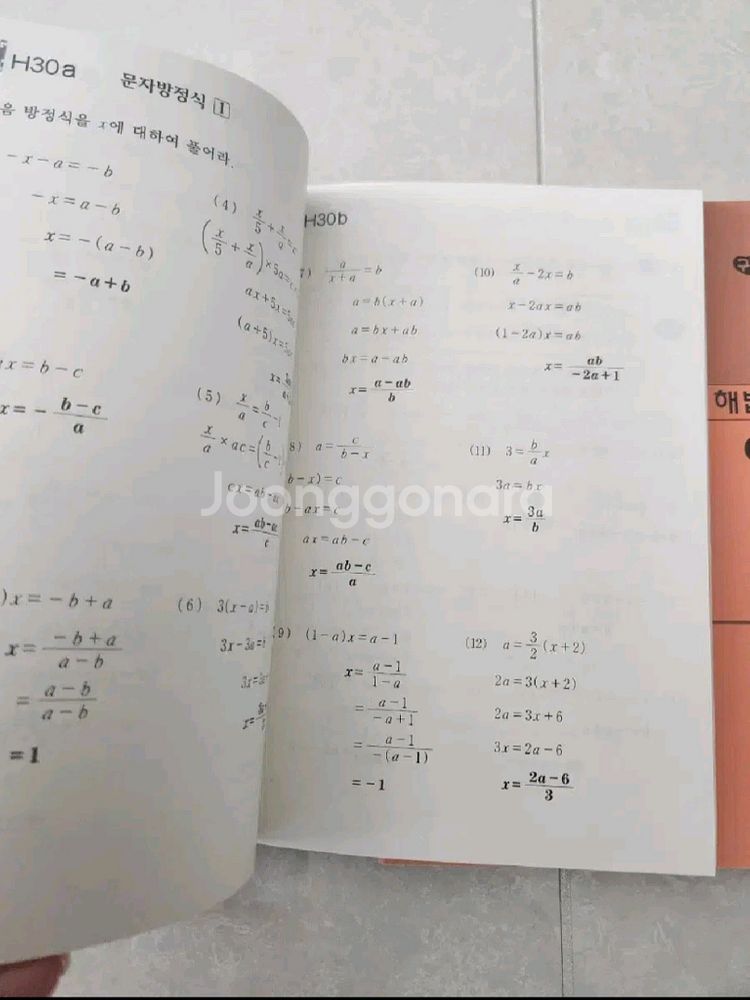 H30a 문자방정식 1
음 방정식을 x에 대하여 풀어라.
-x-a=-b
-x=a-b
x=-(a-b)
=-a+b
x=b-c
x=-\frac{b-c}{a}
)x=-b+a
x=\frac{-b+a}{a-b}
=\frac{a-b}{a-b}
=1
(4) \frac{x}{5}+\frac{x}{a}=c
(\frac{x}{5}+\frac{x}{a})×5a=
ax+5x=5
(a+5)x=5
x=
(5) \frac{x}{a}=\frac{b}{c}-1
\frac{x}{a}×ac=(\frac{b}{c}-
cx=ab-a
x=\frac{ab-a}{c}
(6) 3(x-a)=b
3x-3a=b
3x=
x=
H30b
7) \frac{a}{x+a}=b
a=b(x+a)
a=bx+ab
bx=a-ab
x=\frac{a-ab}{b}
8) a=\frac{c}{b-x}
b-x)=c
b-ax=c
ax=ab-c
x=\frac{ab-c}{a}
9) (1-a)x=a-1
x=\frac{a-1}{1-a}
=\frac{a-1}{-a+1}
=\frac{a-1}{-(a-1)}
=-1
(10) \frac{x}{a}-2x=b
x-2ax=ab
(1-2a)x=ab
x=\frac{ab}{-2a+1}
(11) 3=\frac{b}{a}x
3a=bx
x=\frac{3a}{b}
(12) a=\frac{3}{2}(x+2)
2a=3(x+2)
2a=3x+6
3x=2a-6
x=\frac{2a-6}{3}
해법
Joonggonara